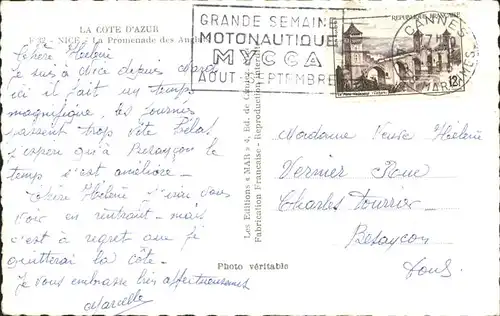 LA COTE D'AZUR
F 32 - NICE - La Promenade des Angl
Chère Hélène
Je suis à Nice depuis mardi
ici il fait un temps
magnifique, les journées
passent trop vite hélas
j'espère qu'à Besançon le
temps s'est amélioré -
Chère Hélène j'irai vous
voir en rentrant - mais
c'est à regret que je
quitterai la côte -
Je vous embrasse très affectueusement
Marcelle
Photo véritable
Les Editions « MAR » 4, Ed. de
Fabrication Française - Reproduction interdite
GRANDE SEMAINE
MOTONAUTIQUE
MYCCA
AOUT - SEPTEMBRE
REPUBLIQUE FRANÇAISE
12F
CANNES
MARITIMES
Madame Veuve Hélène
Vernier Rue
Charles Fourrier
Besançon
Doubs.